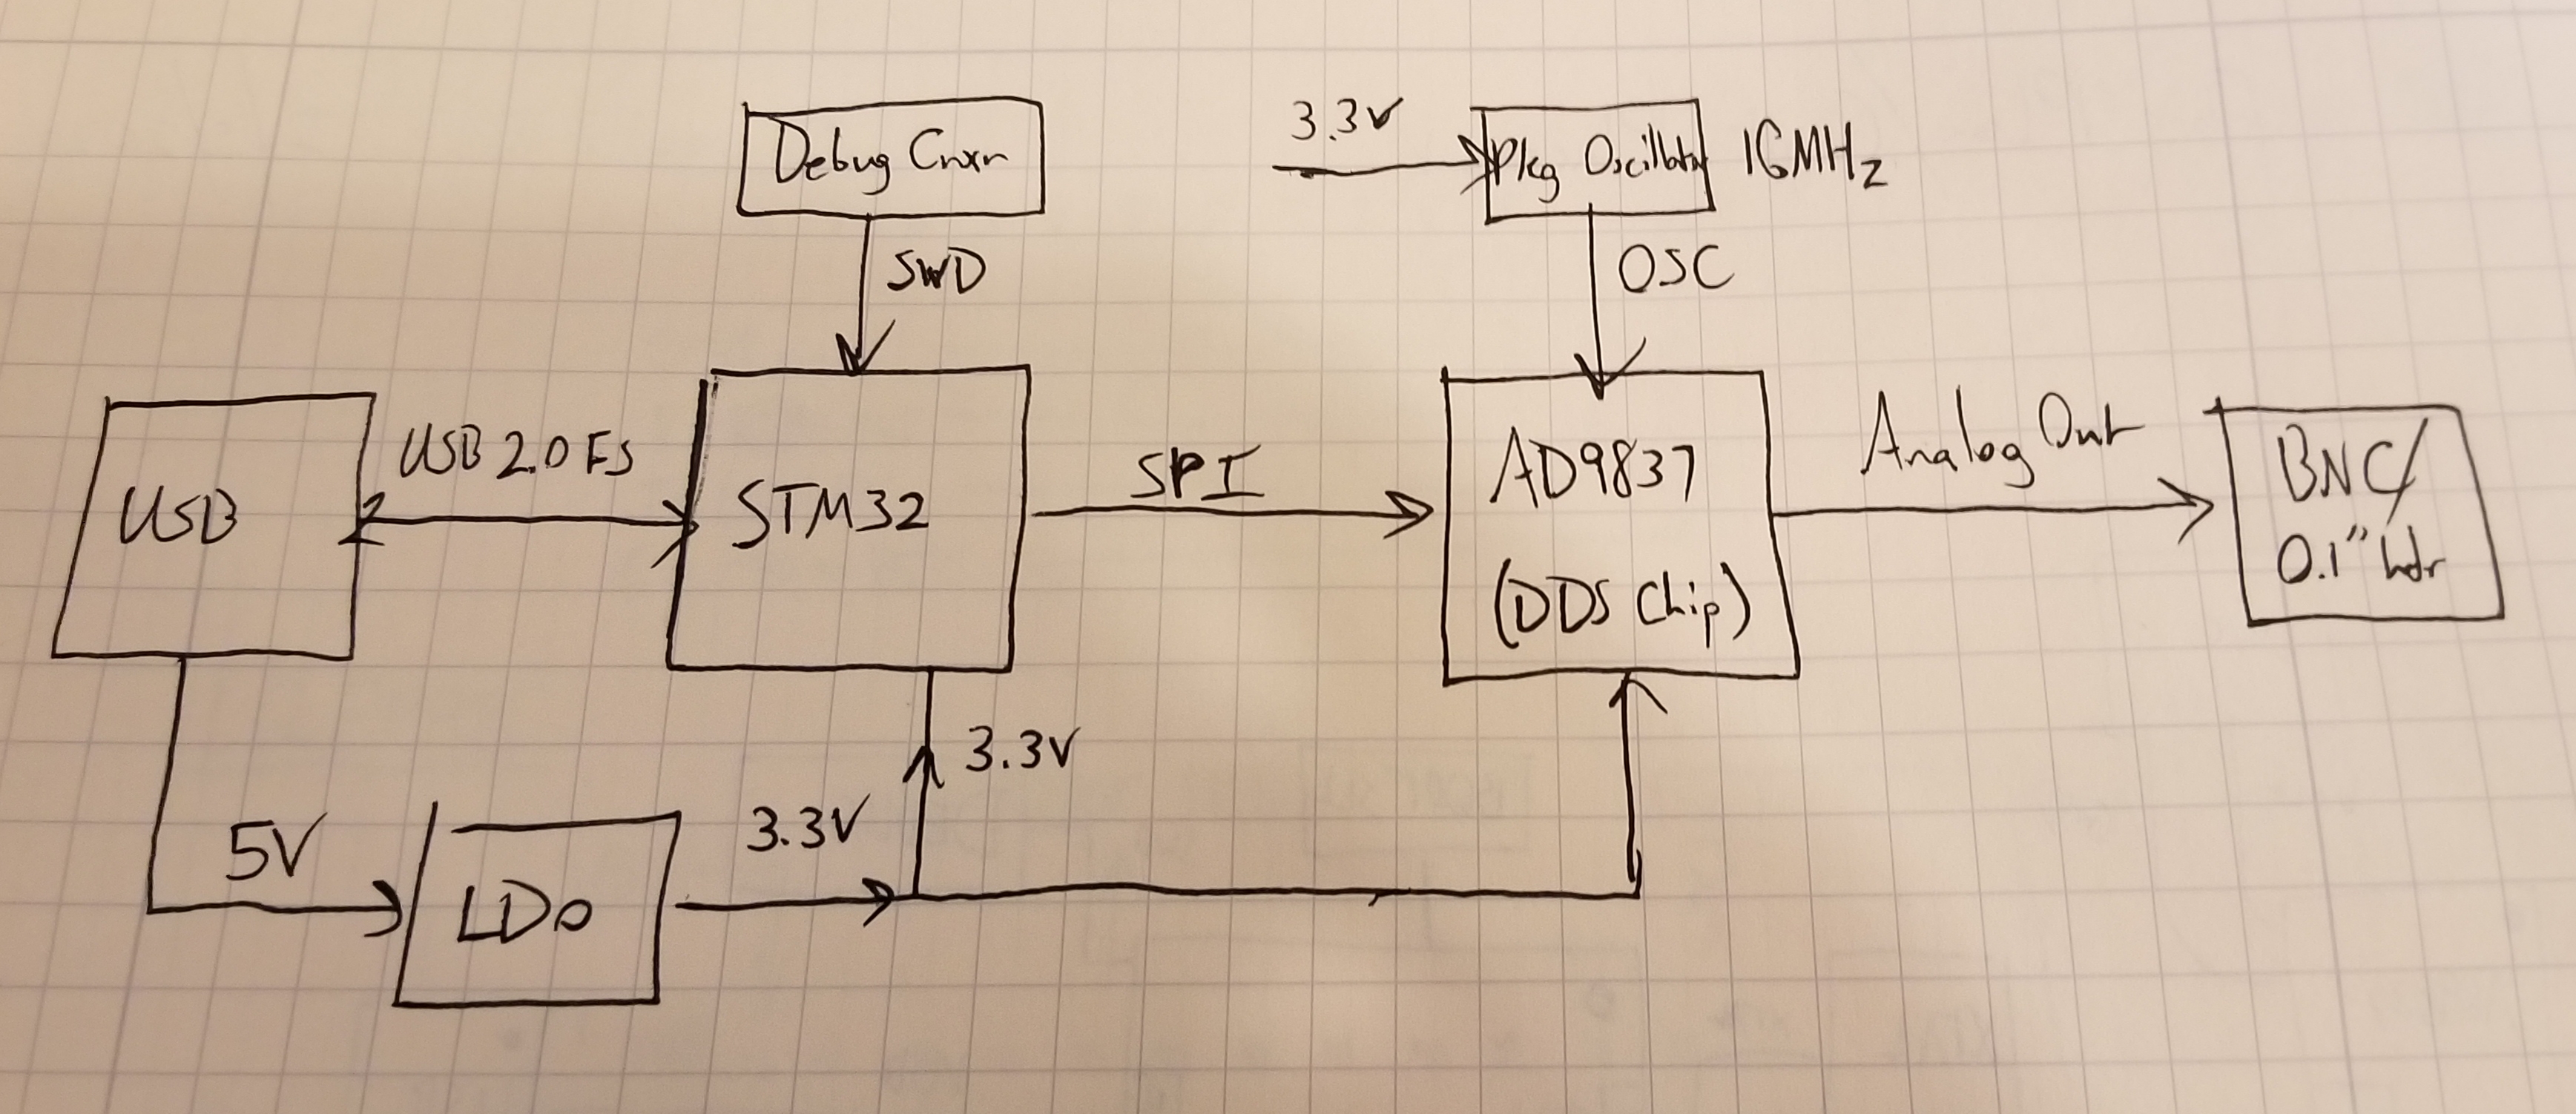 Debug Cnxn
3.3V
Pkg Oscillator
16MHz
SWD
OSC
USB
USB 2.0 FS
STM32
SPI
AD9837
(DDS Chip)
Analog Out
BNC/
0.1" hdr
5V
LDO
3.3V
3.3V